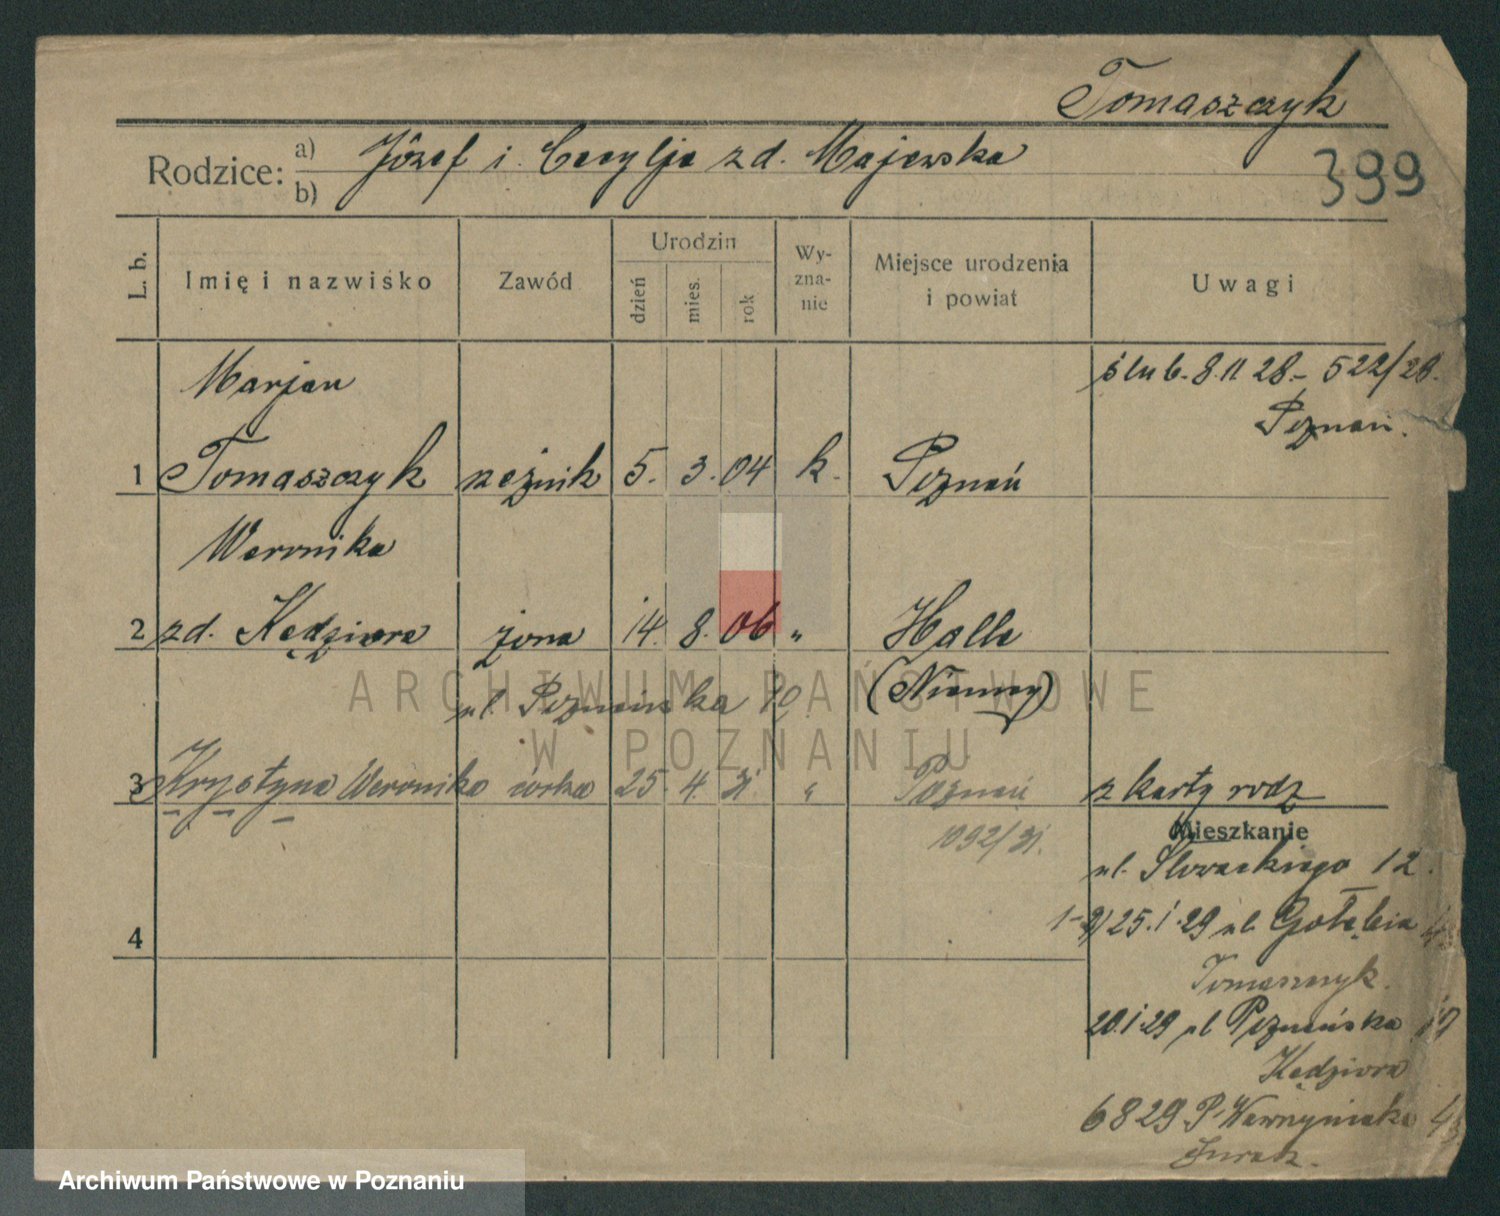 Tomaszczyk
Rodzice: a) Józef i Cecylja zd. Majewska
b)
399
L. b.
Imię i nazwisko
Zawód
Urodzin
dzień
mies.
rok
Wy-
zna-
nie
Miejsce urodzenia
i powiat
Uwagi
Marjan
ślub. 8.11 28 - 522/28.
Poznań.
1 Tomaszczyk rzeźnik 5. 3. 04 k. Poznań
Weronika
2 zd. Kędziora żona 14. 8. 06 „ Halle
ul. Poznańska (Niemcy)
3 Krystyna Weronika córka 25. 4. 31. „ Poznań z karty rodz
1092/31.
Mieszkanie
ul. Słowackiego 12.
25.1.29 ul. Gołębia
4
Tomaszczyk.
20.1.29 ul Poznańska 17
Kędziora
6 8 29. P. Wawrzyniaka
ARCHIWUM PAŃSTWOWE
W POZNANIU
Archiwum Państwowe w Poznaniu